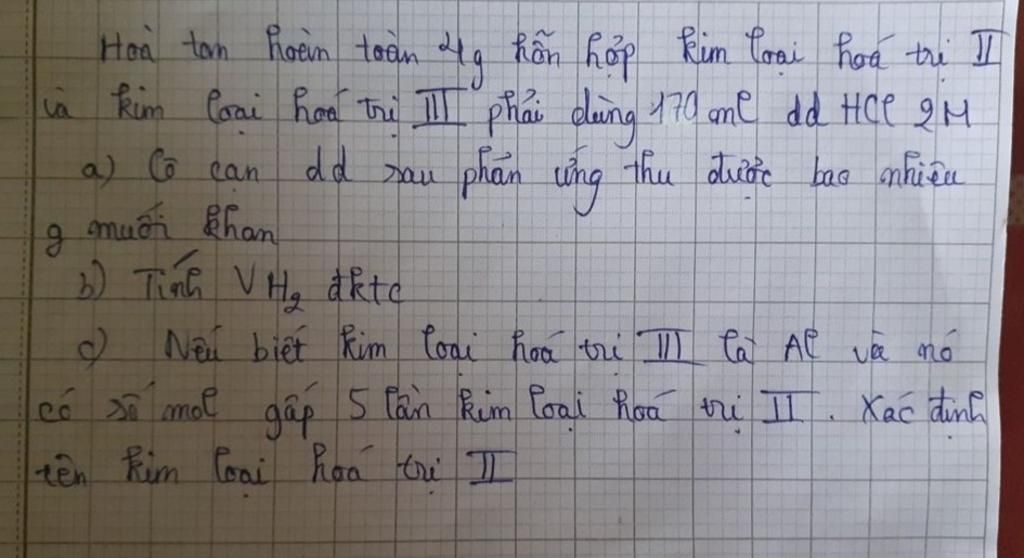 Hoà tan hoàn toàn 4g hỗn hợp kim loại hoá trị II
và kim loại hoá trị III phải dùng 170 ml dd HCl 2M
a) Cô cạn dd sau phản ứng thu được bao nhiêu
g muối khan
b) Tính V H2 đktc
c) Nếu biết kim loại hoá trị III là Al và nó
có số mol gấp 5 lần kim loại hoá trị II. Xác định
tên kim loại hoá trị II